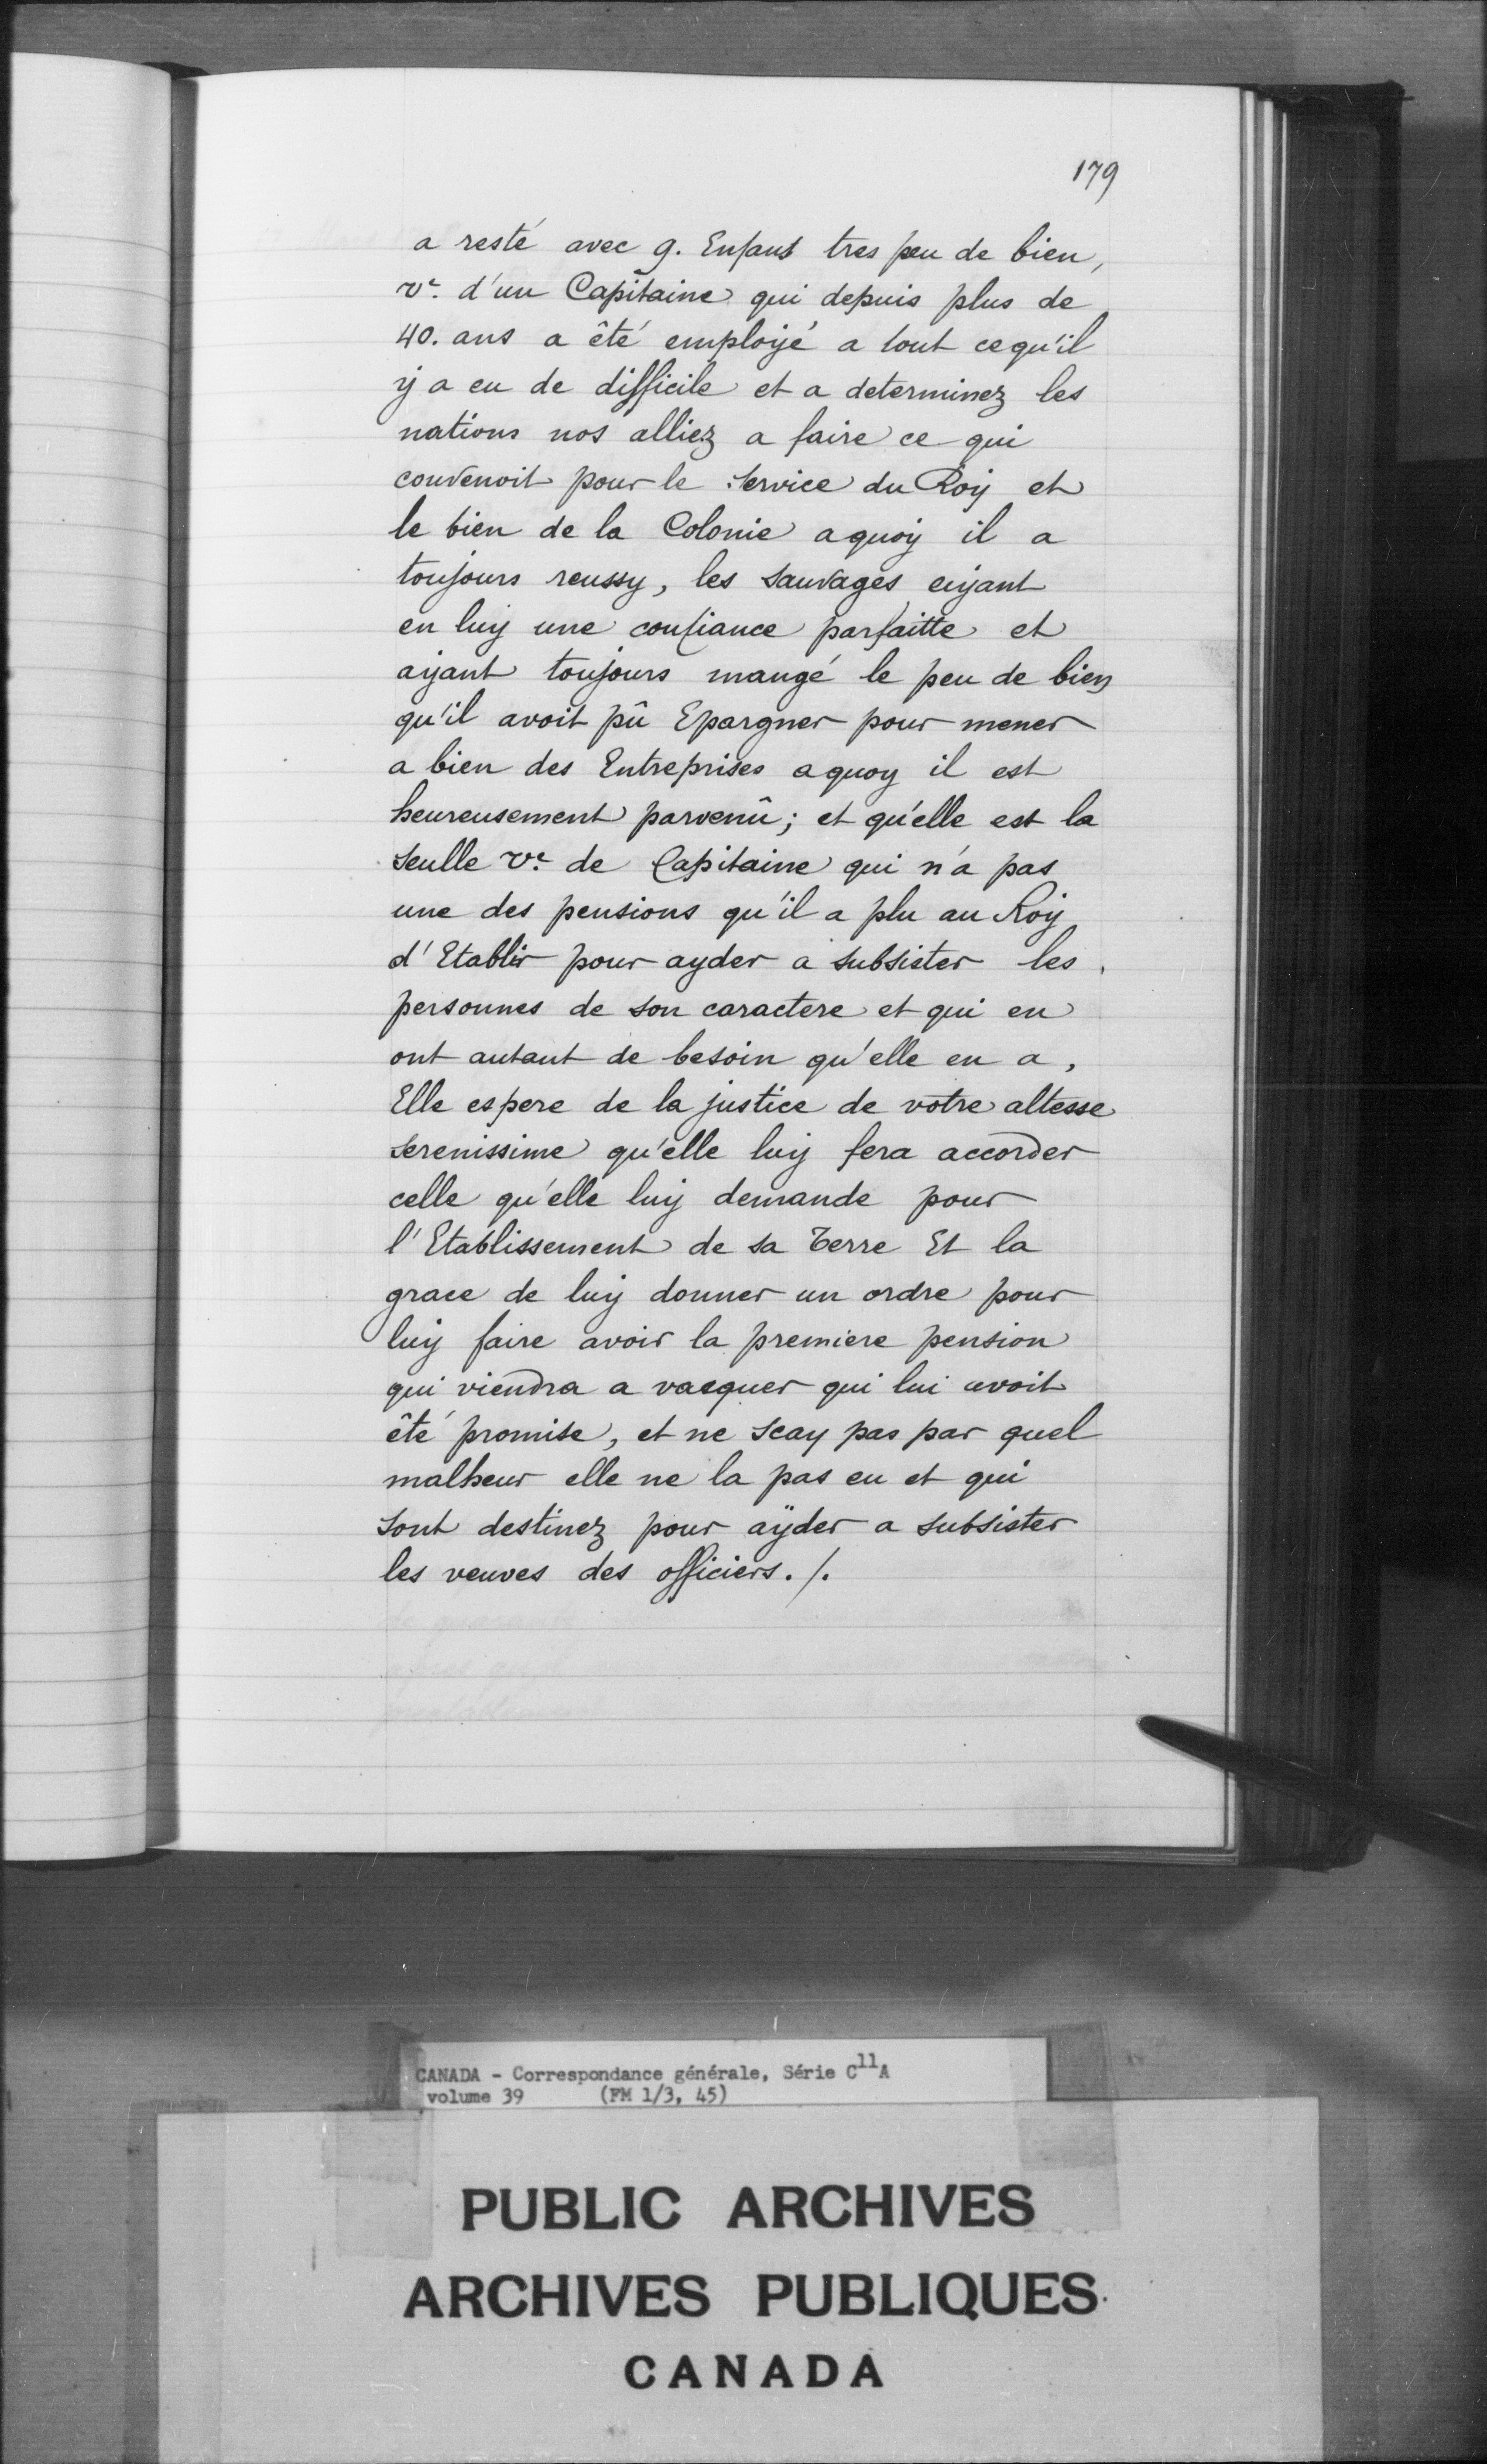 179
a resté avec 9. Enfans tres peu de bien,
ve. d'un Capitaine qui depuis plus de
40. ans a êté employé a tout cequ'il
ÿ a eu de difficile et a determinez les
nations nos alliez a faire ce qui
convenoit pour le service du Roÿ et
le bien de la Colonie aquoÿ il a
toujours reussy, les sauvages aÿant
en luÿ une confiance parfaitte et
aÿant toujours mangé le peu de bien
qu'il avoit pû Epargner pour mener
a bien des Entreprises aquoy il est
heureusement parvenû; et qu'elle est la
seulle ve. de Capitaine qui n'a pas
une des pensions qu'il a plu au Roÿ
d'Etablir pour ayder a subsister les
personnes de son caractere et qui en
ont autant de besoin qu'elle en a,
Elle espere de la justice de votre altesse
serenissime qu'elle luÿ fera accorder
celle qu'elle luÿ demande pour
l'Etablissement de sa Terre Et la
grace de luÿ donner un ordre pour
luÿ faire avoir la premiere pension
qui viendra a vacquer qui lui avoit
êté promise, et ne scay pas par quel
malheur elle ne la pas eu et qui
sont destinez pour aÿder a subsister
les veuves des officiers. /.
CANADA - Correspondance générale, Série C11A
volume 39 (FM 1/3, 45)
PUBLIC ARCHIVES
ARCHIVES PUBLIQUES
CANADA